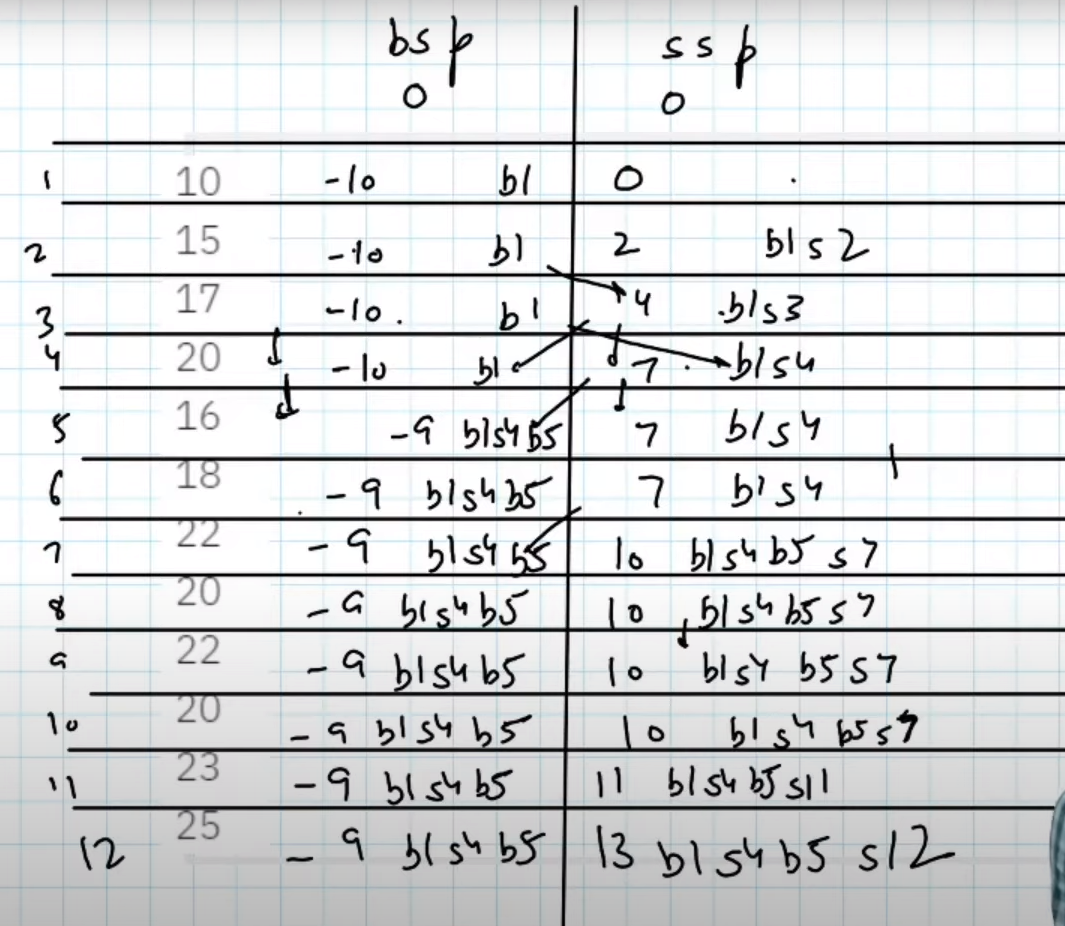 bsp ssp
0 0
1 10 -10 b1 0 .
2 15 -10 b1 2 b1s2
3 17 -10. b1 4 .b1s3
4 20 -10 b1 7. b1s4
5 16 -9 b1s4b5 7 b1s4
6 18 -9 b1s4b5 7 b1s4
7 22 -9 b1s4b5 10 b1s4b5s7
8 20 -9 b1s4b5 10 b1s4b5s7
9 22 -9 b1s4b5 10 b1s4 b5s7
10 20 -9 b1s4 b5 10 b1s4 b5s7
11 23 -9 b1s4b5 11 b1s4b5s11
12 25 -9 b1s4b5 13 b1s4b5 s12